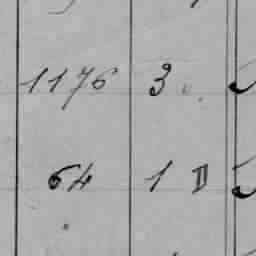 1176 3
64 1 II